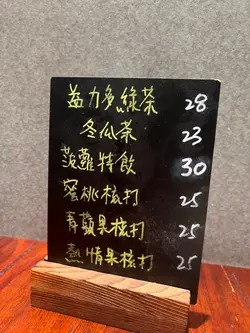 益力多綠茶 28
冬瓜茶 23
菠蘿特飲 30
蜜桃梳打 25
青蘋果梳打 25
熱情果梳打 25